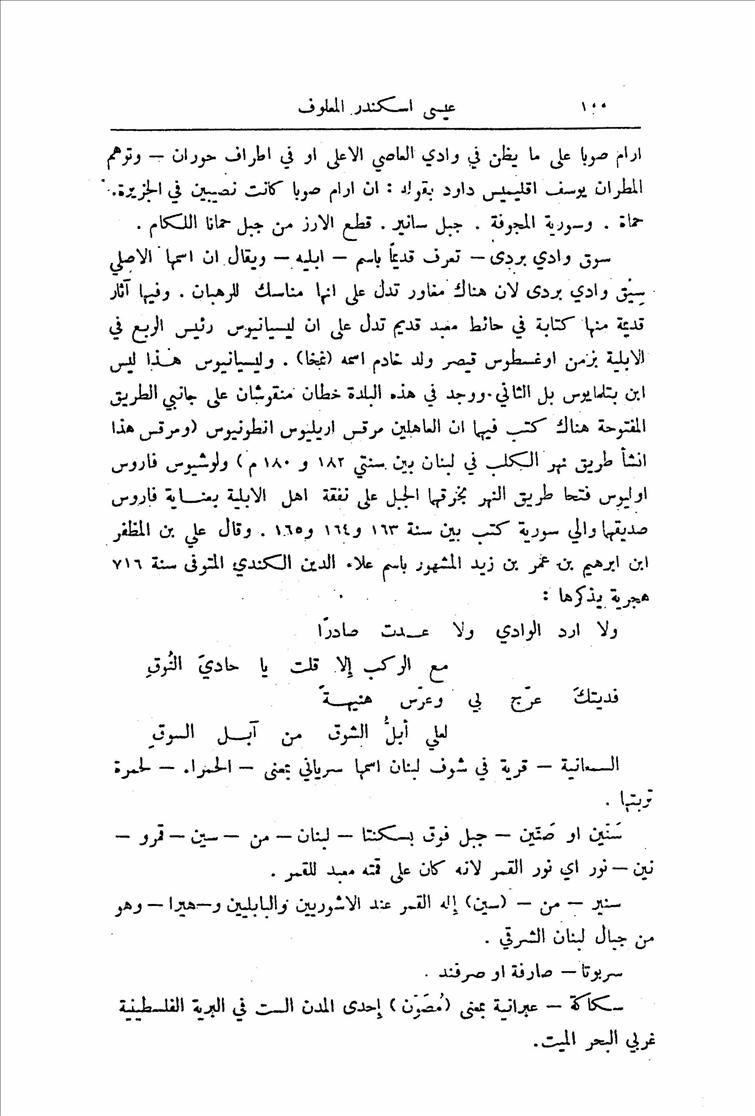 ١٠٠ عيسى اسكندر المعلوف
ارام صوبا على ما يظن في وادي العاصي الاعلى او في اطراف حوران – وتوهم
المطران يوسف اقليميس دارد بقوله : ان ارام صوبا كانت نصيبين في الجزيرة.
حماة . وسورية المجوفة . جبل سانير . قطع الارز من جبل حمانا اللكام .
سوق وادي بردى – تعرف قديماً باسم – ابليه – ويقال ان اسمها الاصلي
سِيْق وادي بردى لان هناك مغاور تدل على انها مناسك للرهبان . وفيها آثار
قديمة منها كتابة في حائط معبد قديم تدل على ان ليسيانيوس رئيس الربع في
الابلية بزمن اوغسطوس قيصر ولد خادم اسمه (نمخا) . وليسيانيوس هذا ليس
ابن بتلمايوس بل الثاني . ووجد في هذه البلدة خطان منقوشان على جانبي الطريق
المفتوحة هناك كتب فيها ان العاهلين مرقس اريليوس انطونيوس (ومرقس هذا
انشأ طريق نهر الكلب في لبنان بين سنتي ١٨٢ و ١٨٠ م) ولوشيوس فاروس
اوليوس فتحا طريق النهر بخرقها الجبل على نفقة اهل الابلية بعناية فاروس
صديقها والي سورية كتب بين سنة ١٦٣ و١٦٤ و١٦٥ . وقال علي بن المظفر
ابن ابرهيم بن عمر بن زيد المشهور باسم علاء الدين الكندي المتوفى سنة ٧١٦
هجرية يذكرها :
ولا ارد الوادي ولا عدت صادرًا
مع الركب إلا قلت يا حاديَ النُوقِ
فديتكَ عرّج بي وعرّس هنيهةً
لعلي أبلُّ الشوق من آبل السوقِ
السمانية – قرية في شوف لبنان اسمها سرياني بمعنى – الحمراء – لحمرة
تربتها .
سَنّين او صَنّين – جبل فوق بسكنتا – لبنان – من – سين – قمرو –
نين – نور اي نور القمر لانه كان على قمته معبد للقمر .
سنير – من – (سين) إله القمر عند الاشوريين والبابليين و– هيرا – وهو
من جبال لبنان الشرقي .
سربوتا – صارفة او صرفند .
سكاكة – عبرانية بمعنى (مُصَوَّن) إحدى المدن الست في البرية الفلسطينية
غربي البحر الميت.